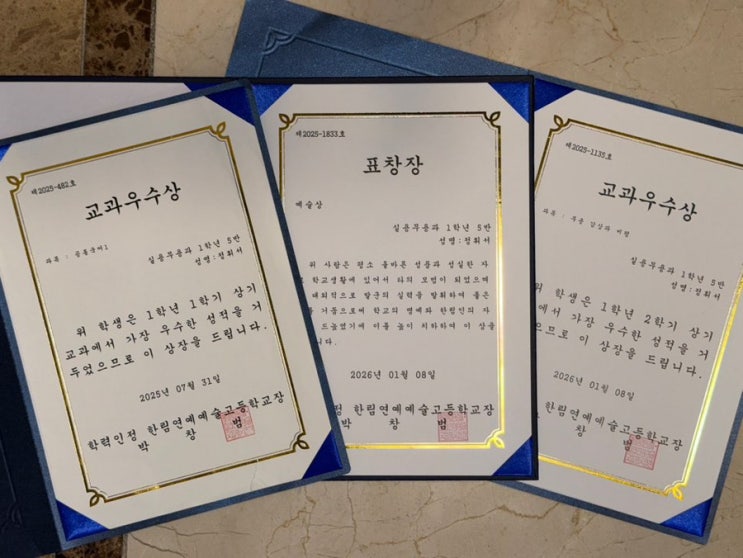 제2025-482호
교과우수상
과목 : 공통국어1
실용무용과 1학년 5반
성명:정휘서
위 학생은 1학년 1학기 상기
교과에서 가장 우수한 성적을 거
두었으므로 이 상장을 드립니다.
2025년 07월 31일
학력인정 한림연예예술고등학교장
박 창 범
제2025-1833호
표창장
예술상
실용무용과 1학년 5반
성명:정휘서
위 사람은 평소 올바른 성품과 성실한 자
학교생활에 있어서 타의 모범이 되었으며
대회적으로 발군의 실력을 발휘하여 좋은
거둠으로써 학교의 명예와 한림인의 자
드높였기에 이를 높이 치하하여 이 상을
니다.
2026년 01월 08일
한림연예예술고등학교장
박 창 범
제2025-1135호
교과우수상
과목 : 무용 감상과 비평
실용무용과 1학년 5반
성명:정휘서
위 학생은 1학년 2학기 상기
에서 가장 우수한 성적을 거
으므로 이 상장을 드립니다.
2026년 01월 08일
한림연예예술고등학교장
창 범